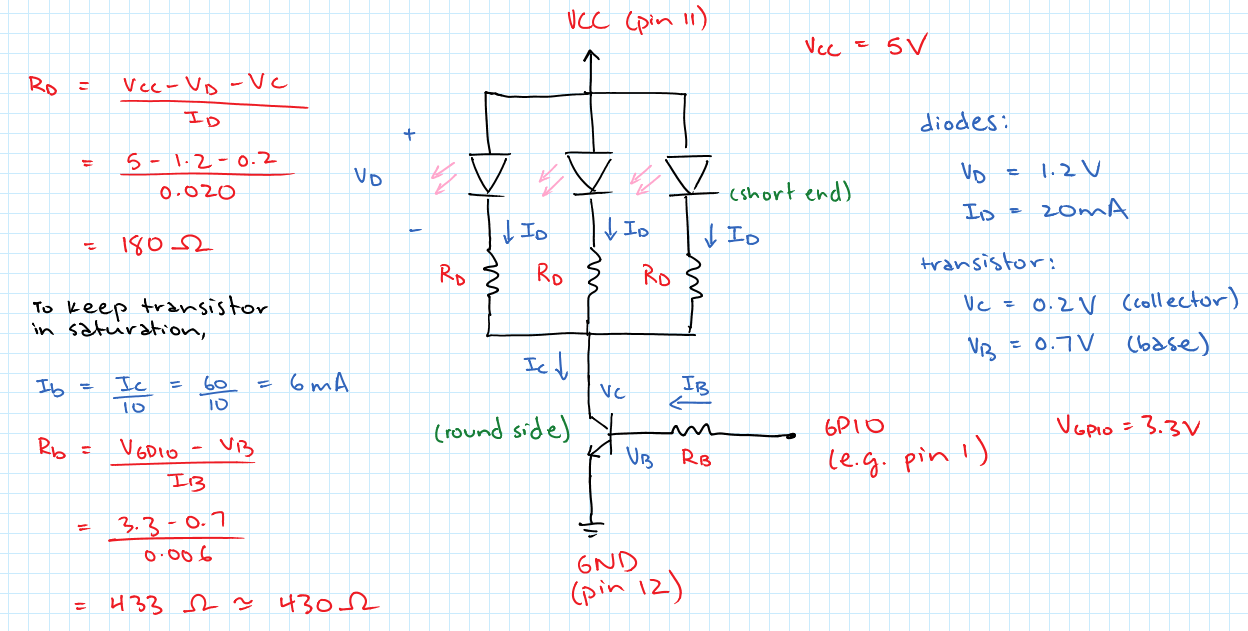 VCC (pin 11)
Vcc = 5V
RD = VCC - VD - VC
ID
= 5 - 1.2 - 0.2
0.020
= 180 Ω
To keep transistor
in saturation,
Ib = Ic = 60 = 6mA
10 10
Rb = VGPIO - VB
IB
= 3.3 - 0.7
0.006
= 433 Ω ≈ 430Ω
+
VD
-
(short end)
↓ ID ↓ ID ↓ ID
RD RD RD
Ic ↓
VC
IB
←
(round side)
VB RB
GPIO
(e.g. pin 1)
GND
(pin 12)
diodes:
VD = 1.2V
ID = 20mA
transistor:
Vc = 0.2V (collector)
VB = 0.7V (base)
VGPIO = 3.3V